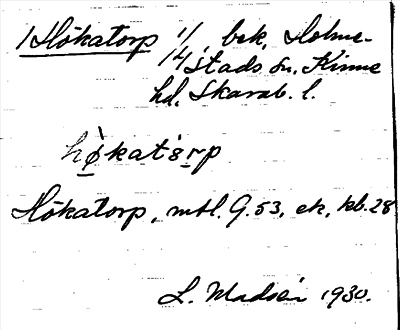 1 Hökatorp 1/1 bek, Holme-
1/4 stads sn. Kinne
hd. Skarab. l.
hø̀katˈɜrp
Hökatorp, mtl. G. 53, ek, kb. 28
L. Madsén 1930.